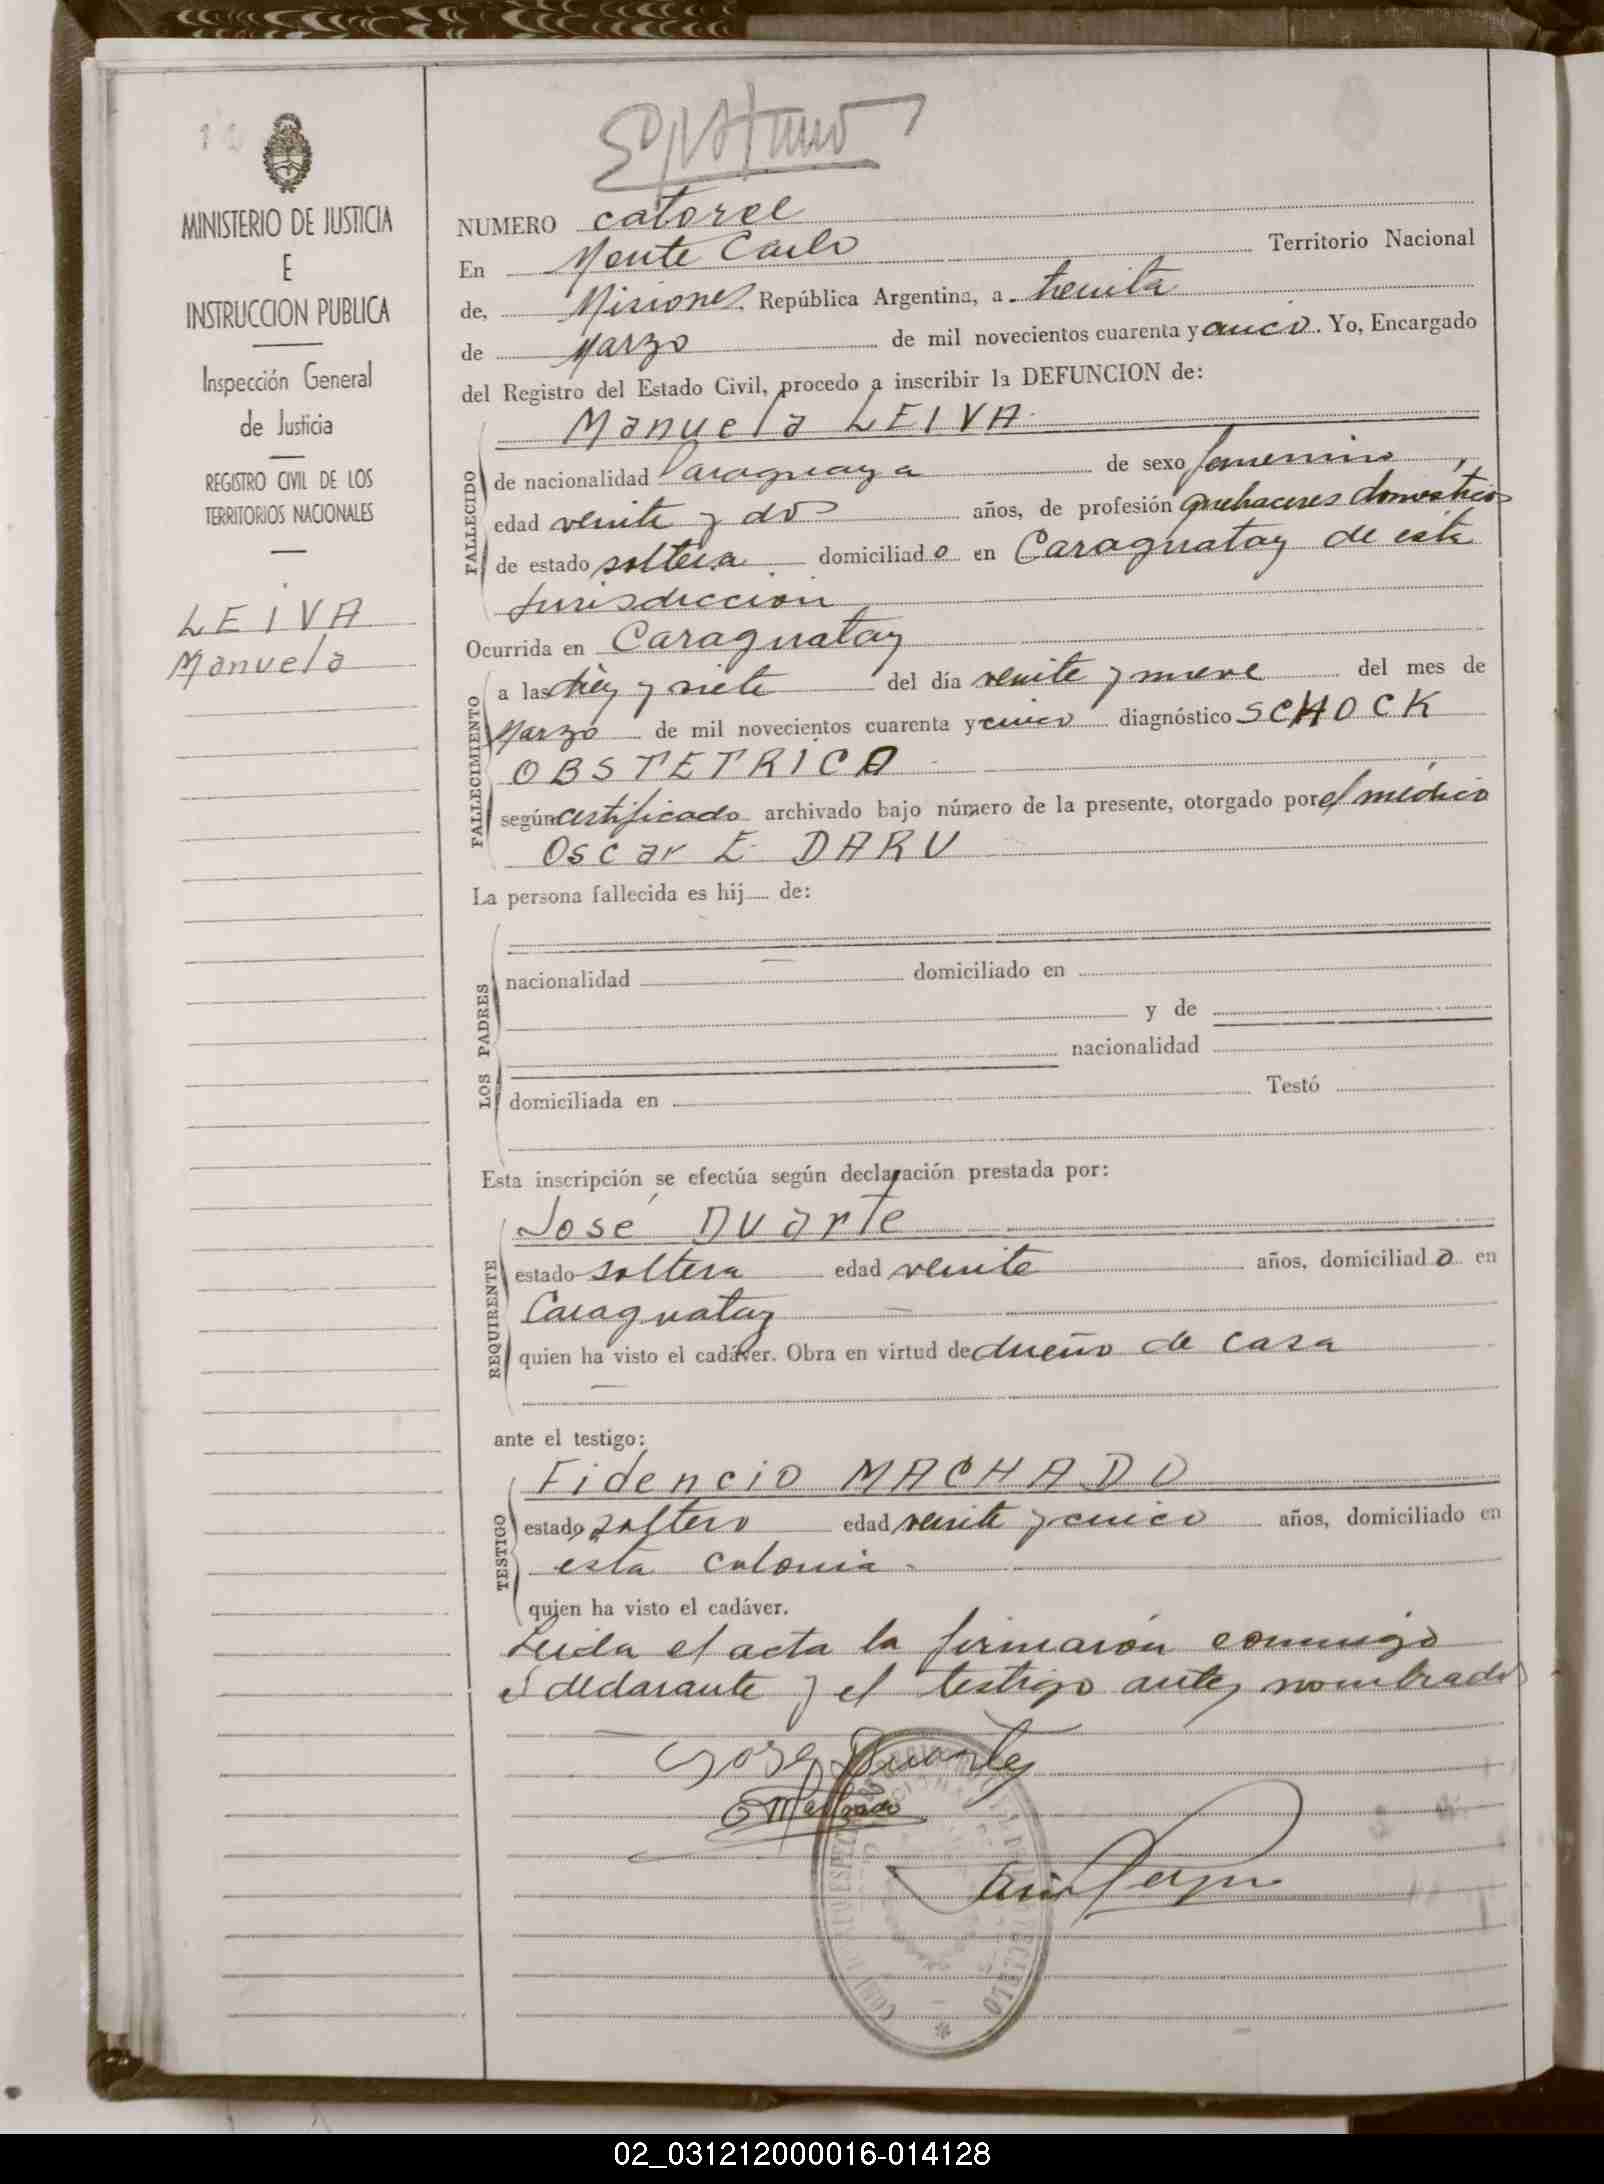 MINISTERIO DE JUSTICIA
E
INSTRUCCION PUBLICA
Inspección General
de Justicia
REGISTRO CIVIL DE LOS
TERRITORIOS NACIONALES
LEIVA
Manuela
NUMERO catorce
En Monte Carlo Territorio Nacional
de, Misiones, República Argentina, a treinta
de Marzo de mil novecientos cuarenta y cinco. Yo, Encargado
del Registro del Estado Civil, procedo a inscribir la DEFUNCION de:
Manuela LEIVA
FALLECIDO
de nacionalidad Paraguaya de sexo femenino,
edad veinte y dos años, de profesión quehaceres domesticos
de estado soltera domiciliado en Caraguatay de esta
Jurisdiccion
Ocurrida en Caraguatay
FALLECIMIENTO
a las diez y siete del día veinte y nueve del mes de
Marzo de mil novecientos cuarenta y cinco diagnóstico SCHOCK
OBSTETRICO
según certificado archivado bajo número de la presente, otorgado por el médico
Oscar E. DARU
La persona fallecida es hij de:
LOS PADRES
nacionalidad domiciliado en
y de
nacionalidad
domiciliada en Testó
Esta inscripción se efectúa según declaración prestada por:
José Duarte
REQUIRENTE
estado soltera edad veinte años, domiciliado en
Caraguatay
quien ha visto el cadáver. Obra en virtud de dueño de casa
ante el testigo:
Fidencio MACHADO
TESTIGO
estado soltero edad veinte y cinco años, domiciliado en
esta colonia
quien ha visto el cadáver.
Leida el acta la firmarón conmigo
el declarante y el testigo antes nombrados
Jose Duarte
02_031212000016-014128